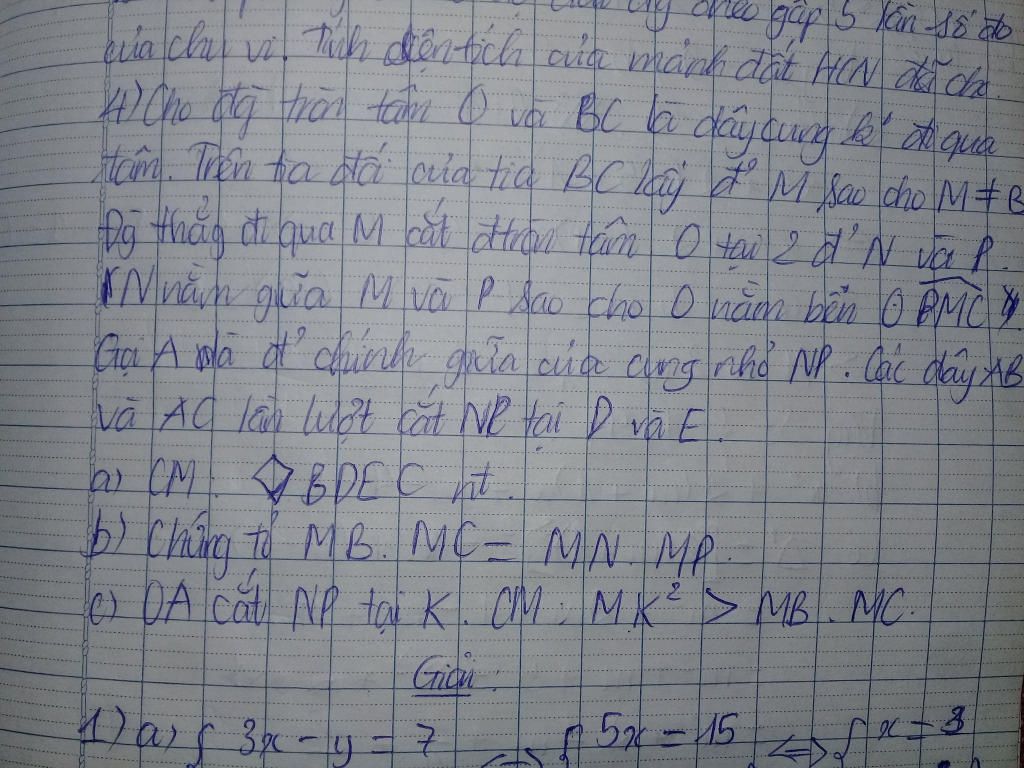 chéo gấp 5 lần số đo
của chu vi. Tính diện tích của mảnh đất HCN đã cho.
4) Cho đg tròn tâm O và BC là dây cung k° đi qua
tâm. Trên tia đối của tia BC lấy đ' M sao cho M ≠ B
Đg thẳg đi qua M cắt đtròn tâm O tại 2 đ' N và P.
N nằm giữa M và P sao cho O nằm bên
Gọi A là đ' chính giữa của cung nhỏ NP. Các dây AB
và AC lần lượt cắt NP tại D và E.
a) CM: BDEC nt.
b) Chứng tỏ MB. MC = MN. MP.
c) OA cắt NP tại K. CM: MK² > MB. MC.
Giải:
1) a) { 3x - y = 7 <=> { 5x = 15 <=> { x = 3